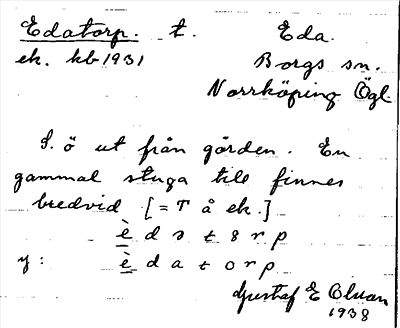 Edatorp. t. Eda.
ek. kb 1931 Borgs sn.
Norrköping Ögl.
S. ö ut från gården. En
gammal stuga till finnes
bredvid [= T å ek.]
è d a t o r p
y: è d a t o r p
Gustaf E Olsson
1938